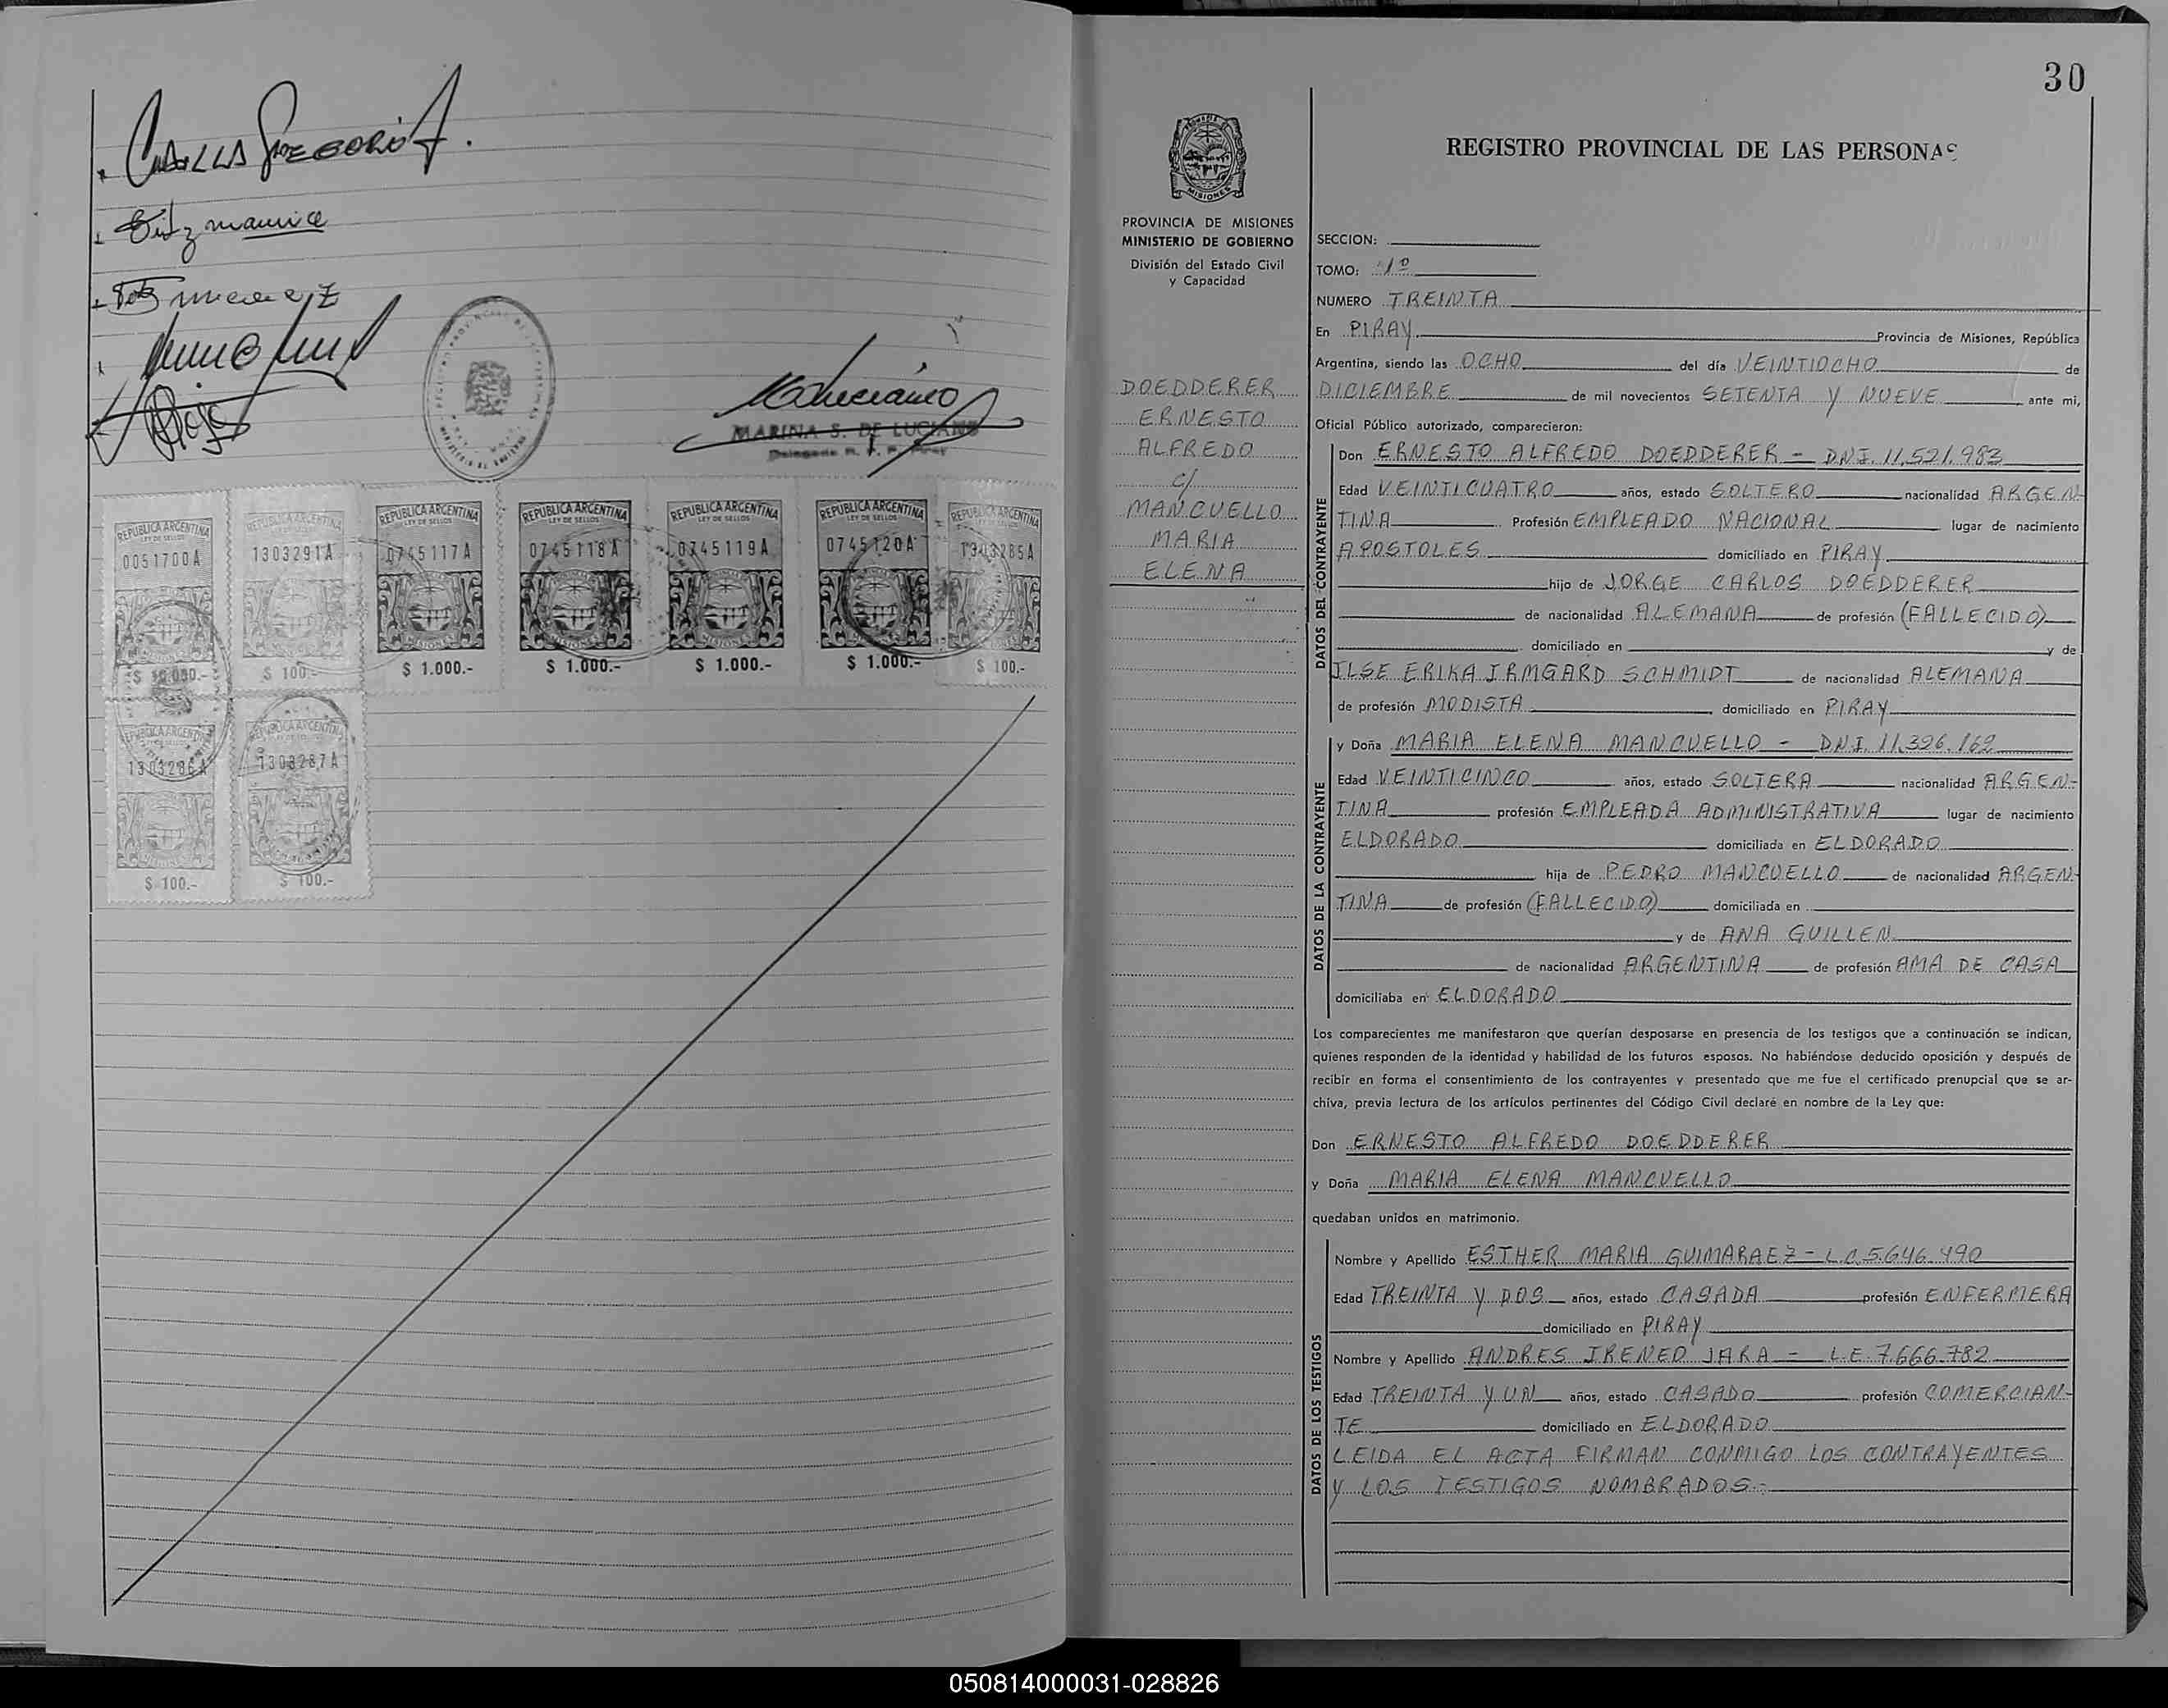 REPUBLICA ARGENTINA
LEY DE SELLOS
0051700A
REPUBLICA ARGENTINA
1303291A
$ 100.-
REPUBLICA ARGENTINA
LEY DE SELLOS
0745117A
MISIONES
$ 1.000.-
REPUBLICA ARGENTINA
LEY DE SELLOS
0745118A
MISIONES
$ 1.000.-
REPUBLICA ARGENTINA
LEY DE SELLOS
0745119A
MISIONES
$ 1.000.-
REPUBLICA ARGENTINA
LEY DE SELLOS
0745120A
MISIONES
$ 1.000.-
REPUBLICA ARGENTINA
1303285A
$ 100.-
REPUBLICA ARGENTINA
1303286A
$ 100.-
REPUBLICA ARGENTINA
1303287A
$ 100.-
MARINA S. DE LUCIANO
30
MISIONES
PROVINCIA DE MISIONES
MINISTERIO DE GOBIERNO
División del Estado Civil
y Capacidad
DOEDDERER
ERNESTO
ALFREDO
c/
MANCUELLO
MARIA
ELENA
REGISTRO PROVINCIAL DE LAS PERSONAS
SECCION:
TOMO: 1º
NUMERO TREINTA
En PIRAY Provincia de Misiones, República
Argentina, siendo las OCHO del día VEINTIOCHO de
DICIEMBRE de mil novecientos SETENTA Y NUEVE ante mi,
Oficial Público autorizado, comparecieron:
DATOS DEL CONTRAYENTE
Don ERNESTO ALFREDO DOEDDERER - DNI. 11.521.983
Edad VEINTICUATRO años, estado SOLTERO nacionalidad ARGEN-
TINA Profesión EMPLEADO NACIONAL lugar de nacimiento
APOSTOLES domiciliado en PIRAY
hijo de JORGE CARLOS DOEDDERER
de nacionalidad ALEMANA de profesión (FALLECIDO)
domiciliado en y de
ILSE ERIKA IRMGARD SCHMIDT de nacionalidad ALEMANA
de profesión MODISTA domiciliado en PIRAY
DATOS DE LA CONTRAYENTE
y Doña MARIA ELENA MANCUELLO - DNI. 11.396.169
Edad VEINTICINCO años, estado SOLTERA nacionalidad ARGEN-
TINA profesión EMPLEADA ADMINISTRATIVA lugar de nacimiento
ELDORADO domiciliada en ELDORADO
hija de PEDRO MANCUELLO de nacionalidad ARGEN-
TINA de profesión (FALLECIDO) domiciliada en
y de ANA GUILLEN
de nacionalidad ARGENTINA de profesión AMA DE CASA
domiciliaba en ELDORADO
Los comparecientes me manifestaron que querían desposarse en presencia de los testigos que a continuación se indican,
quienes responden de la identidad y habilidad de los futuros esposos. No habiéndose deducido oposición y después de
recibir en forma el consentimiento de los contrayentes y presentado que me fue el certificado prenupcial que se ar-
chiva, previa lectura de los artículos pertinentes del Código Civil declaré en nombre de la Ley que:
Don ERNESTO ALFREDO DOEDDERER
y Doña MARIA ELENA MANCUELLO
quedaban unidos en matrimonio.
DATOS DE LOS TESTIGOS
Nombre y Apellido ESTHER MARIA GUIMARAEZ - L.C. 5.646.490
Edad TREINTA Y DOS años, estado CASADA profesión ENFERMERA
domiciliado en PIRAY
Nombre y Apellido ANDRES IRENEO JARA - L.E. 7.666.782
Edad TREINTA Y UN años, estado CASADO profesión COMERCIAN-
TE domiciliado en ELDORADO
LEIDA EL ACTA FIRMAN CONMIGO LOS CONTRAYENTES
Y LOS TESTIGOS NOMBRADOS.-
050814000031-028826